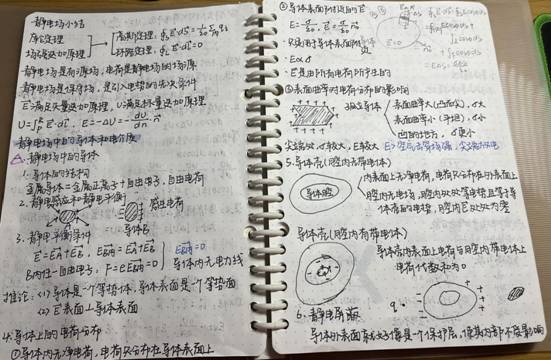 静电场小结
库仑定理
场强叠加原理
高斯定理: ∮E·dS=1/ε₀ Σqᵢ
环路定理: ∮E·dl=0
静电场是有源场，电荷是静电场的场源
静电场是保守场，是引入电势的先决条件
E满足矢量叠加原理，U满足标量叠加原理
E=-∇U=-dU/dn n
静电场中的导体和电介质
一.静电场中的导体
1.导体的结构
金属导体=金属正离子+自由电子，自由电荷
2.静电感应和静电平衡
感应电荷
导体B
3.静电平衡条件
E=E_A+E_B, E_B内=E_A+E_B
E_B内=0
B内任一自由电子，F=eE_B内=0
导体内无电力线
推论：(1)导体是一个等势体，导体表面是一个等势面
(2)E⊥导体表面
4.导体上的电荷分布
①导体内无净电荷，电荷只分布在导体表面上
②导体表面附近的E
E=σ/ε₀, E=σ/ε₀ n
E=0
·E∝σ
·E是由所有电荷所产生的
③表面曲率对电荷分布的影响
孤立导体
表面曲率大(凸而尖)，σ大
表面曲率小(平坦)，σ小
凹的地方，σ更小
尖端处σ较大，E较大
尖端放电
5.导体壳(腔内无带电体)
导体壳
内表面上无净电荷，电荷只分布在外表面上
腔内无电场，腔内处处等电势且等于导
体壳的电势，腔内E处处为零
导体壳(腔内有带电体)
导体壳内表面上电荷与腔内带电体上
电荷代数和为0
6.静电屏蔽
q
导体外表面就好像是一个保护层，使其内部不受影响